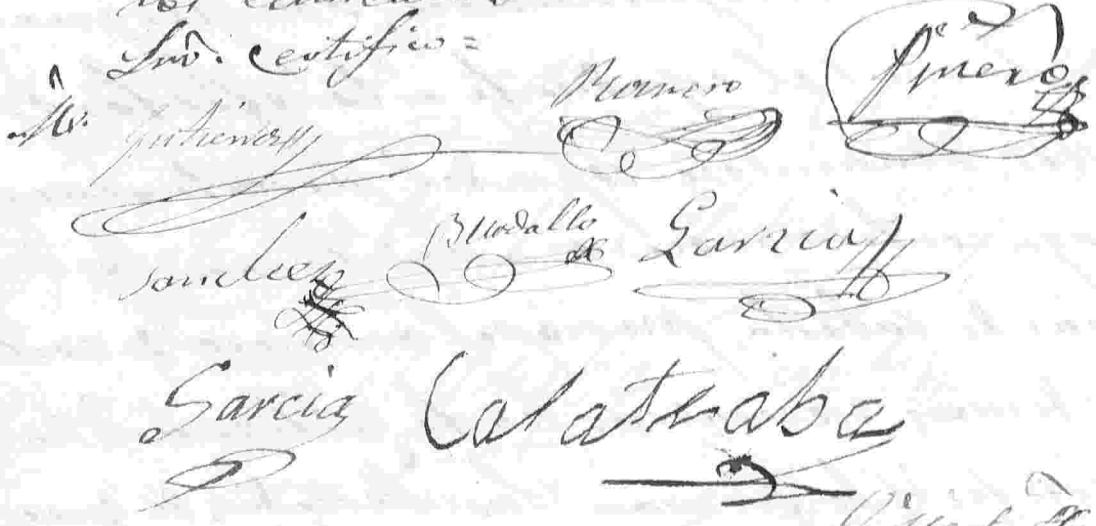 Srio. Certifico =
Gutierrez Romero Piñero
Sanchez Buodallo Garzia
Garcia Calatraba